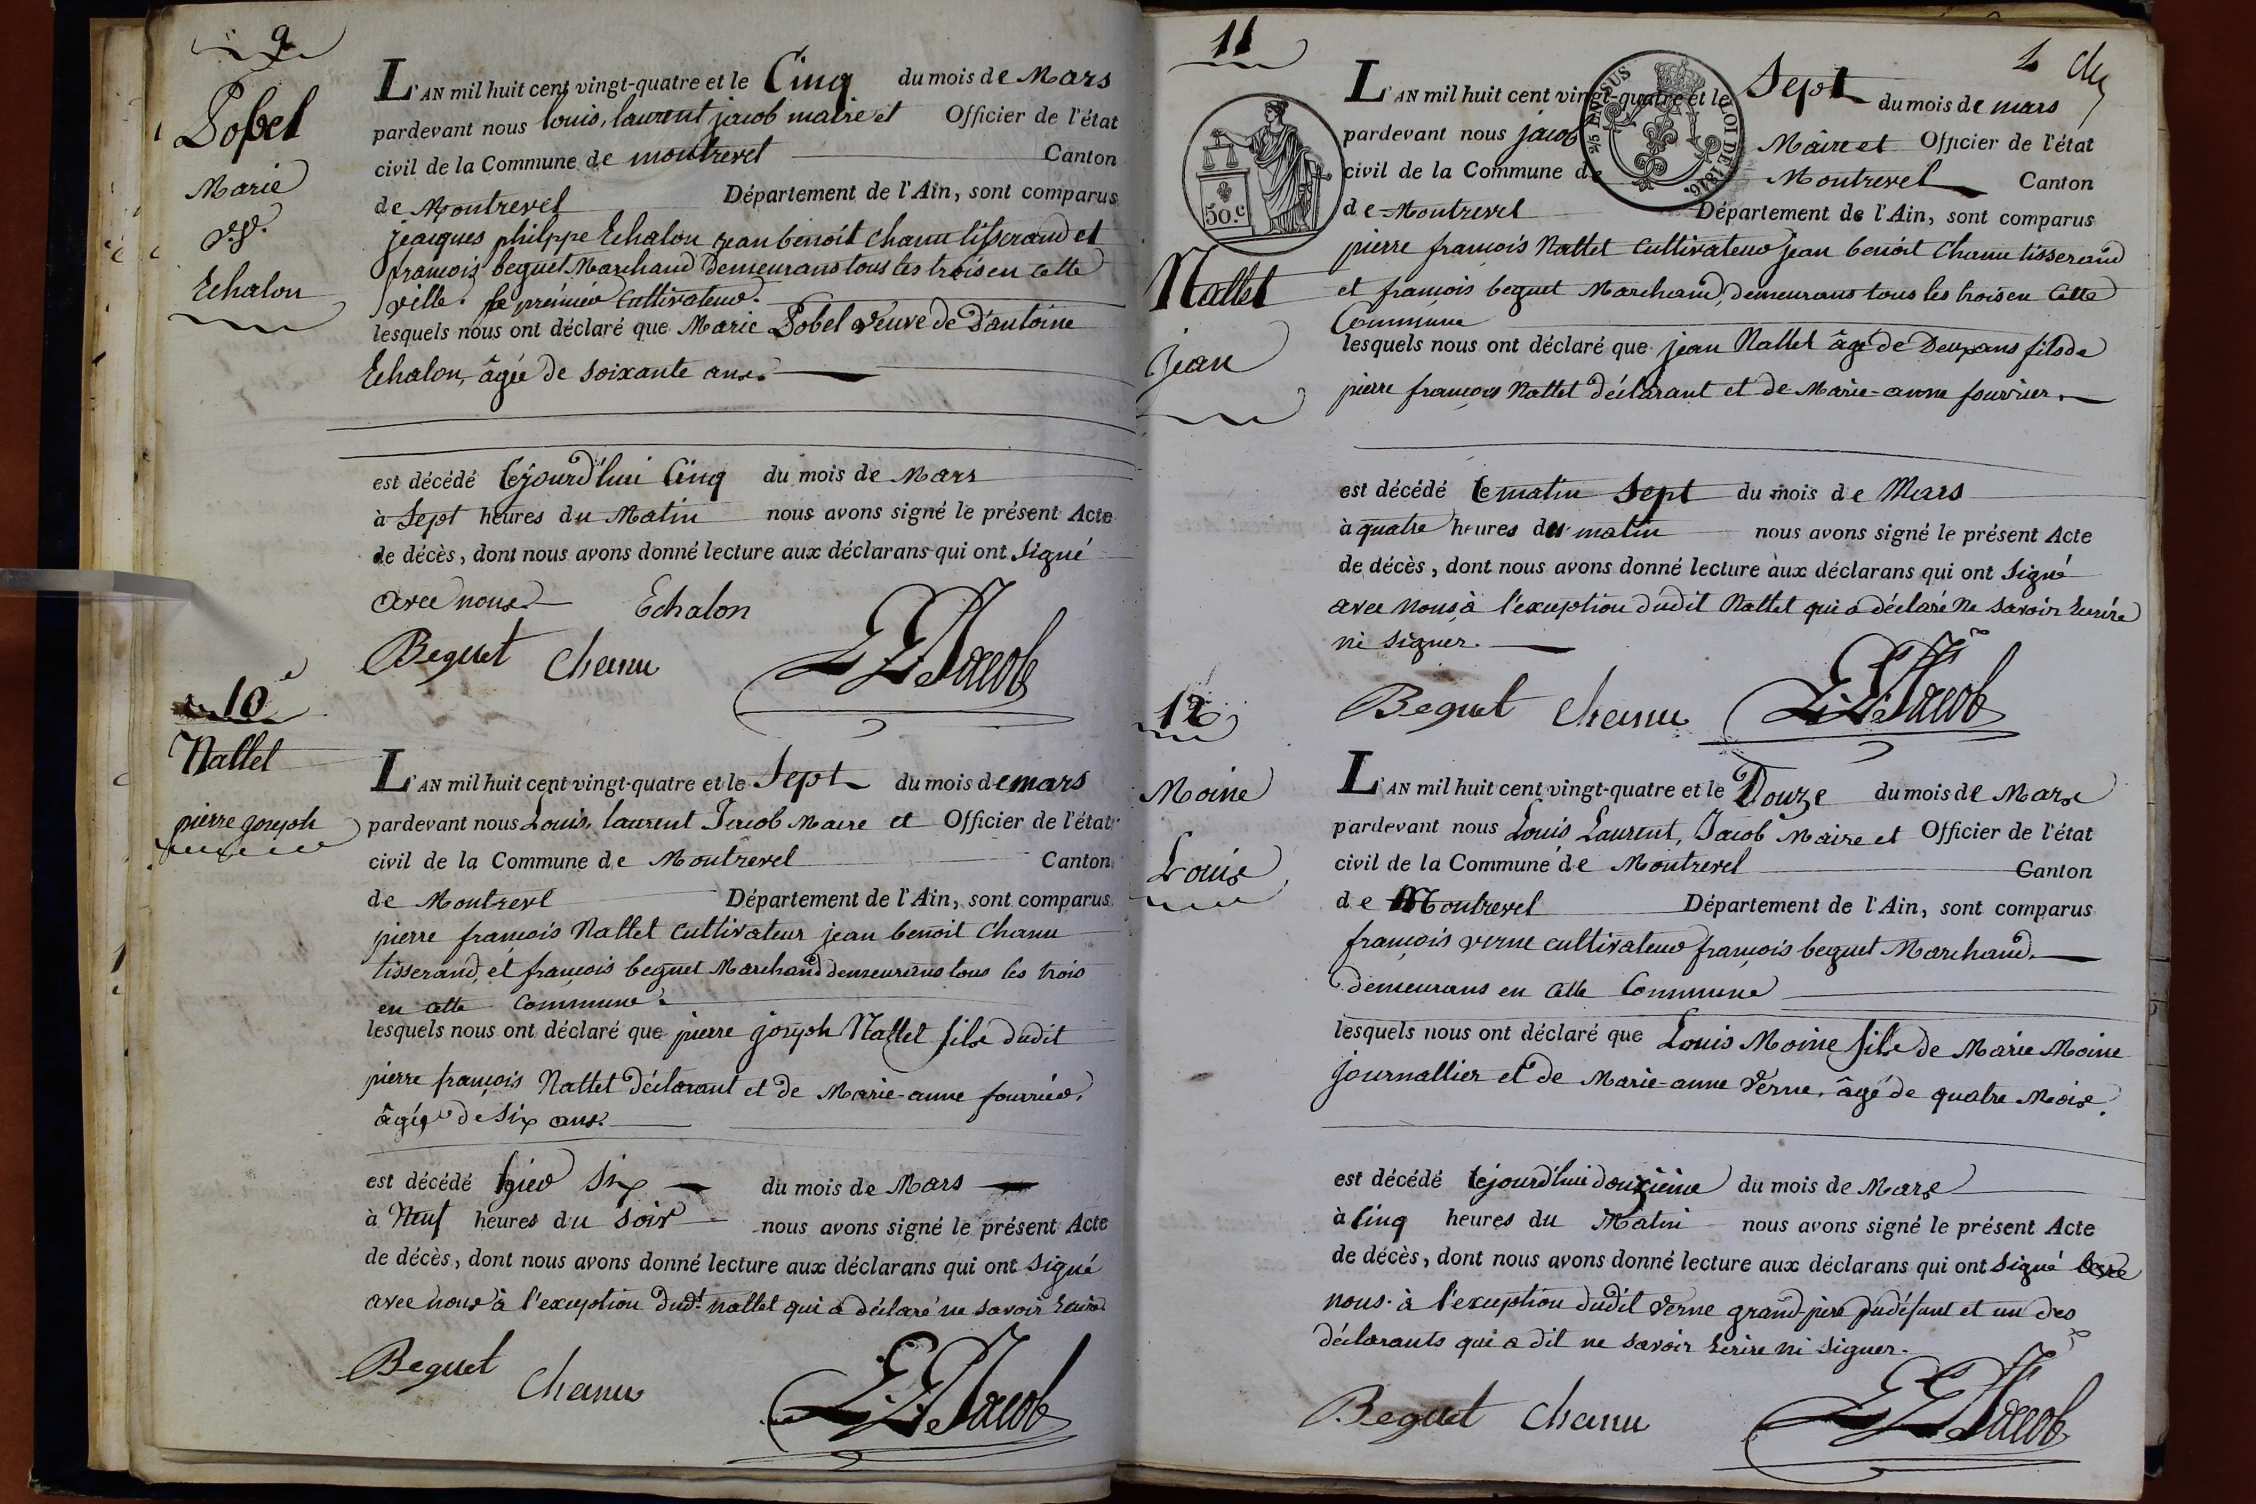 9
Pobel
Marie
v.ve
Echalon
L'AN mil huit cent vingt-quatre et le Cinq du mois de Mars
pardevant nous louis, laurent jacob maire et Officier de l'état
civil de la Commune de montrevel Canton
de Montrevel Département de l'Ain, sont comparus
jeacques philppe Echalon jean benoit chanu tisserand et
françois beguet Marchand Demeurans tous les trois en cette
ville. le prémier Cultivateur.
lesquels nous ont déclaré que Marie Pobel veuve de D'antoine
Echalon, âgée de soixante ans.
est décédé cejourd'hui Cinq du mois de Mars
à Sept heures du Matin nous avons signé le présent Acte
de décès, dont nous avons donné lecture aux déclarans qui ont signé
avec nous.
Echalon
Beguet Chanu L. L. Jacob
10
Nallet
pierre joseph
L'AN mil huit cent vingt-quatre et le Sept du mois de mars
pardevant nous Louis, laurent Jacob Maire et Officier de l'état
civil de la Commune de Montrevel Canton
de Montrevl Département de l'Ain, sont comparus
pierre françois Nallet cultivateur jean benoit Chanu
tisserand, et françois beguet Marchand demeurans tous les trois
en cette Commune.
lesquels nous ont déclaré que pierre joseph Nallet fils dudit
pierre françois Nallet déclarant et de Marie-anne fourrier,
âgé de six ans.
est décédé hier six du mois de Mars
à Neuf heures du soir nous avons signé le présent Acte
de décès, dont nous avons donné lecture aux déclarans qui ont signé
avec nous à l'exception dud.t nallet qui a déclaré ne savoir Ecrire
Beguet Chanu L. L. Jacob
11
Nallet
jean
50.c
2/5 EN SUS LOI DE 1816.
L'AN mil huit cent vingt-quatre et le Sept du mois de mars
pardevant nous jacob Maire et Officier de l'état
civil de la Commune de Montrevel Canton
de Montrevel Département de l'Ain, sont comparus
pierre françois Nallet Cultivateur jean benoit Chanu tisserand
et françois beguet Marchand, demeurans tous les trois en Cette
Commune
lesquels nous ont déclaré que jean Nallet âgé de Deux ans fils de
pierre françois Nallet déclarant et de Marie-anne fourrier.
est décédé ce matin Sept du mois de Mars
à quatre heures du matin nous avons signé le présent Acte
de décès, dont nous avons donné lecture aux déclarans qui ont signé
avec nous à l'exception dudit Nallet qui a déclaré ne savoir Ecrire
ni signer.
Beguet Chanu L. L. Jacob
12
Moine
Louis
L'AN mil huit cent vingt-quatre et le Douze du mois de Mars
pardevant nous Louis Laurent, Jacob Maire et Officier de l'état
civil de la Commune de Montrevel Canton
de Montrevel Département de l'Ain, sont comparus
françois verne cultivateur françois beguet Marchand.
demeurans en cette Commune
lesquels nous ont déclaré que Louis Moine fils de Marie Moine
journallier et de Marie-anne Verne, âgé de quatre Mois.
est décédé cejourd'hui douzième du mois de Mars
à Cinq heures du Matin nous avons signé le présent Acte
de décès, dont nous avons donné lecture aux déclarans qui ont signé avec
nous. à l'exception dudit verne grand-père dudéfunt et un des
déclarants qui a dit ne savoir Ecrire ni signer.
Beguet Chanu L. L. Jacob